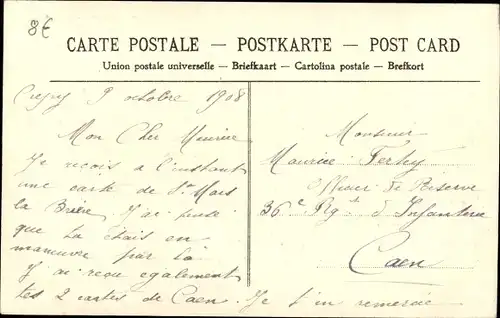 8€
CARTE POSTALE — POSTKARTE — POST CARD
Union postale universelle — Briefkaart — Cartolina postale — Brefkort
9 octobre 1908
Mon Cher Maurice
Je reçois à l'instant
une carte de St Mars
la Brière J'ai pensé
que tu étais en
manœuvre par là
J'ai reçu également
tes 2 cartes de Caen. Je t'en remercie
Monsieur
Maurice
Officier de Réserve
36e Rgt d'Infanterie
Caen